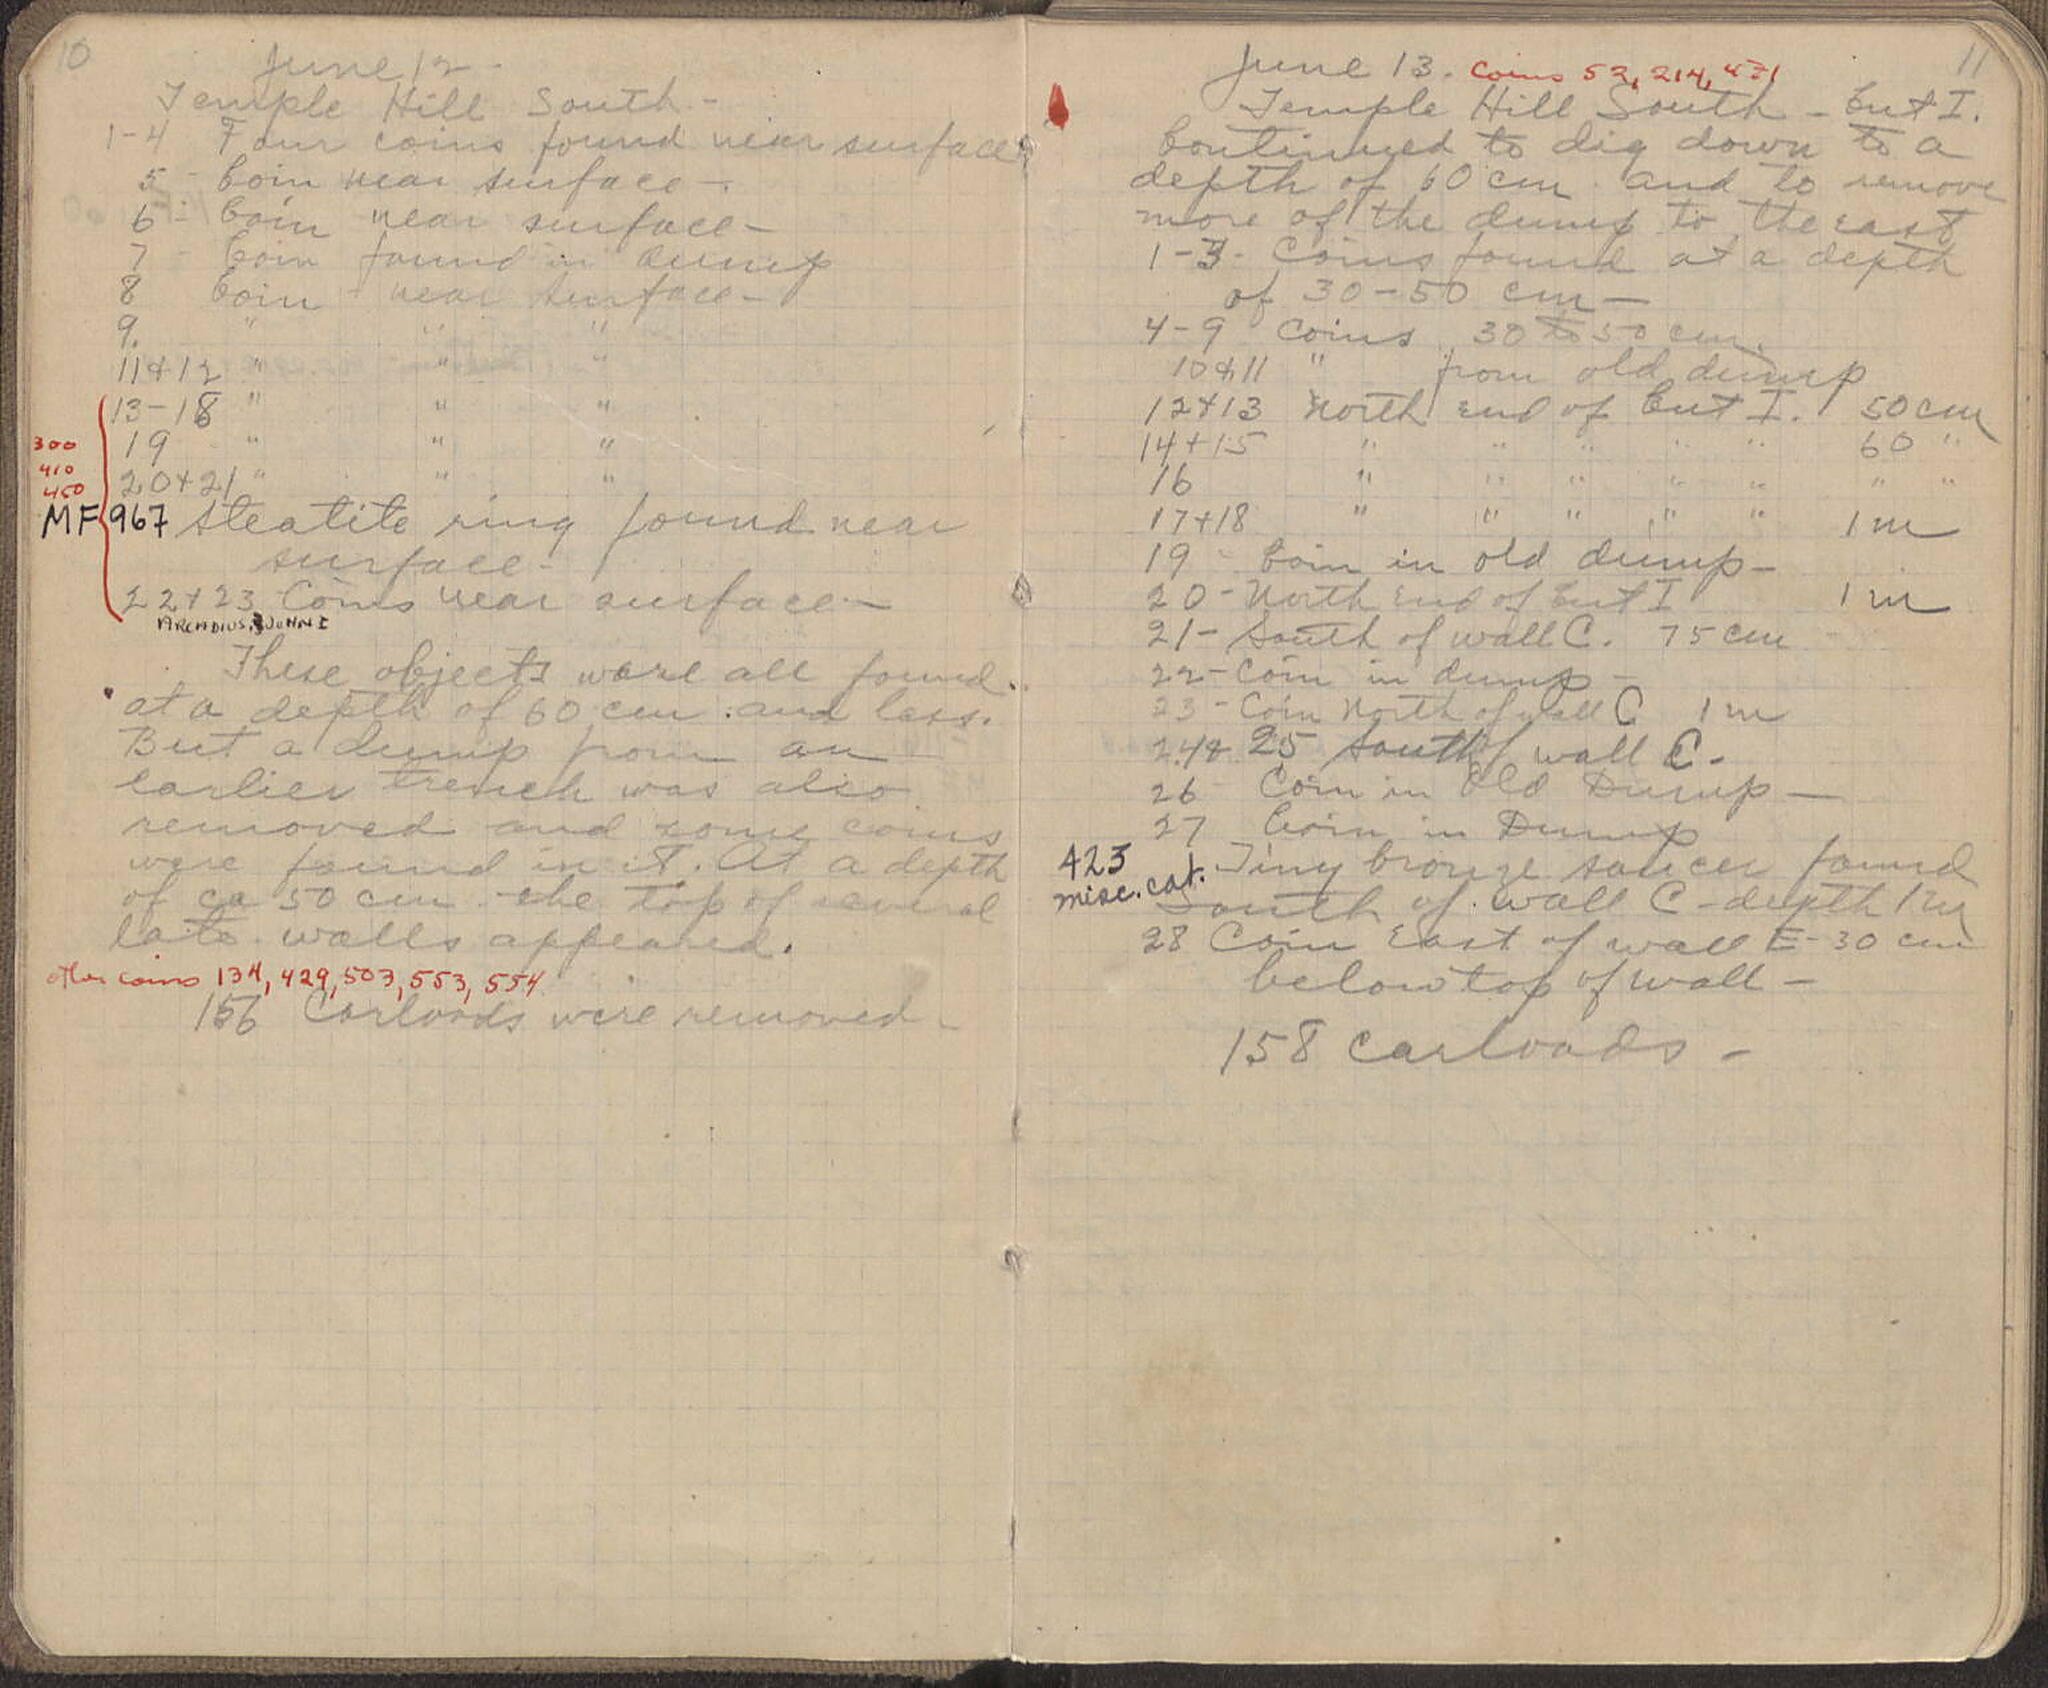 10
June 12 -
Temple Hill South -
1-4 Four coins found near surface
5 - Coin near surface -
6 - Coin near surface -
7 - Coin found in dump
8 Coin near surface -
9. " " "
11+12 " " "
13-18 " " "
300 19 " " "
410
450 20+21 " " "
MF 967 Steatite ring found near
surface -
22+23 Coins near surface -
ARCADIUS, JOHN I
These objects were all found
at a depth of 60 cm. and less.
But a dump from an
earlier trench was also
removed and some coins
were found in it. At a depth
of ca 50 cm the top of several
late walls appeared.
other coins 134, 429, 503, 553, 554
156 Carloads were removed -
11
June 13. Coins 52, 214, 471
Temple Hill South - Cut I.
Continued to dig down to a
depth of 60 cm and to remove
more of the dump to the east
1-3 - Coins found at a depth
of 30-50 cm -
4-9 Coins 30 to 50 cm.
10+11 " from old dump
12+13 North end of Cut I. 50 cm
14+15 " " " " " 60 "
16 " " " " " " "
17+18 " " " " " 1 m
19 - Coin in old dump -
20 - North End of Cut I 1 m
21 - South of wall C. 75 cm
22 - Coin in dump -
23 - Coin North of wall C 1 m
24+25 South of wall C -
26 Coin in Old Dump -
27 Coin in Dump
423 Tiny bronze saucer found
misc. cat. South of wall C - depth 1 m
28 Coin East of wall E - 30 cm
below top of wall -
158 carloads -